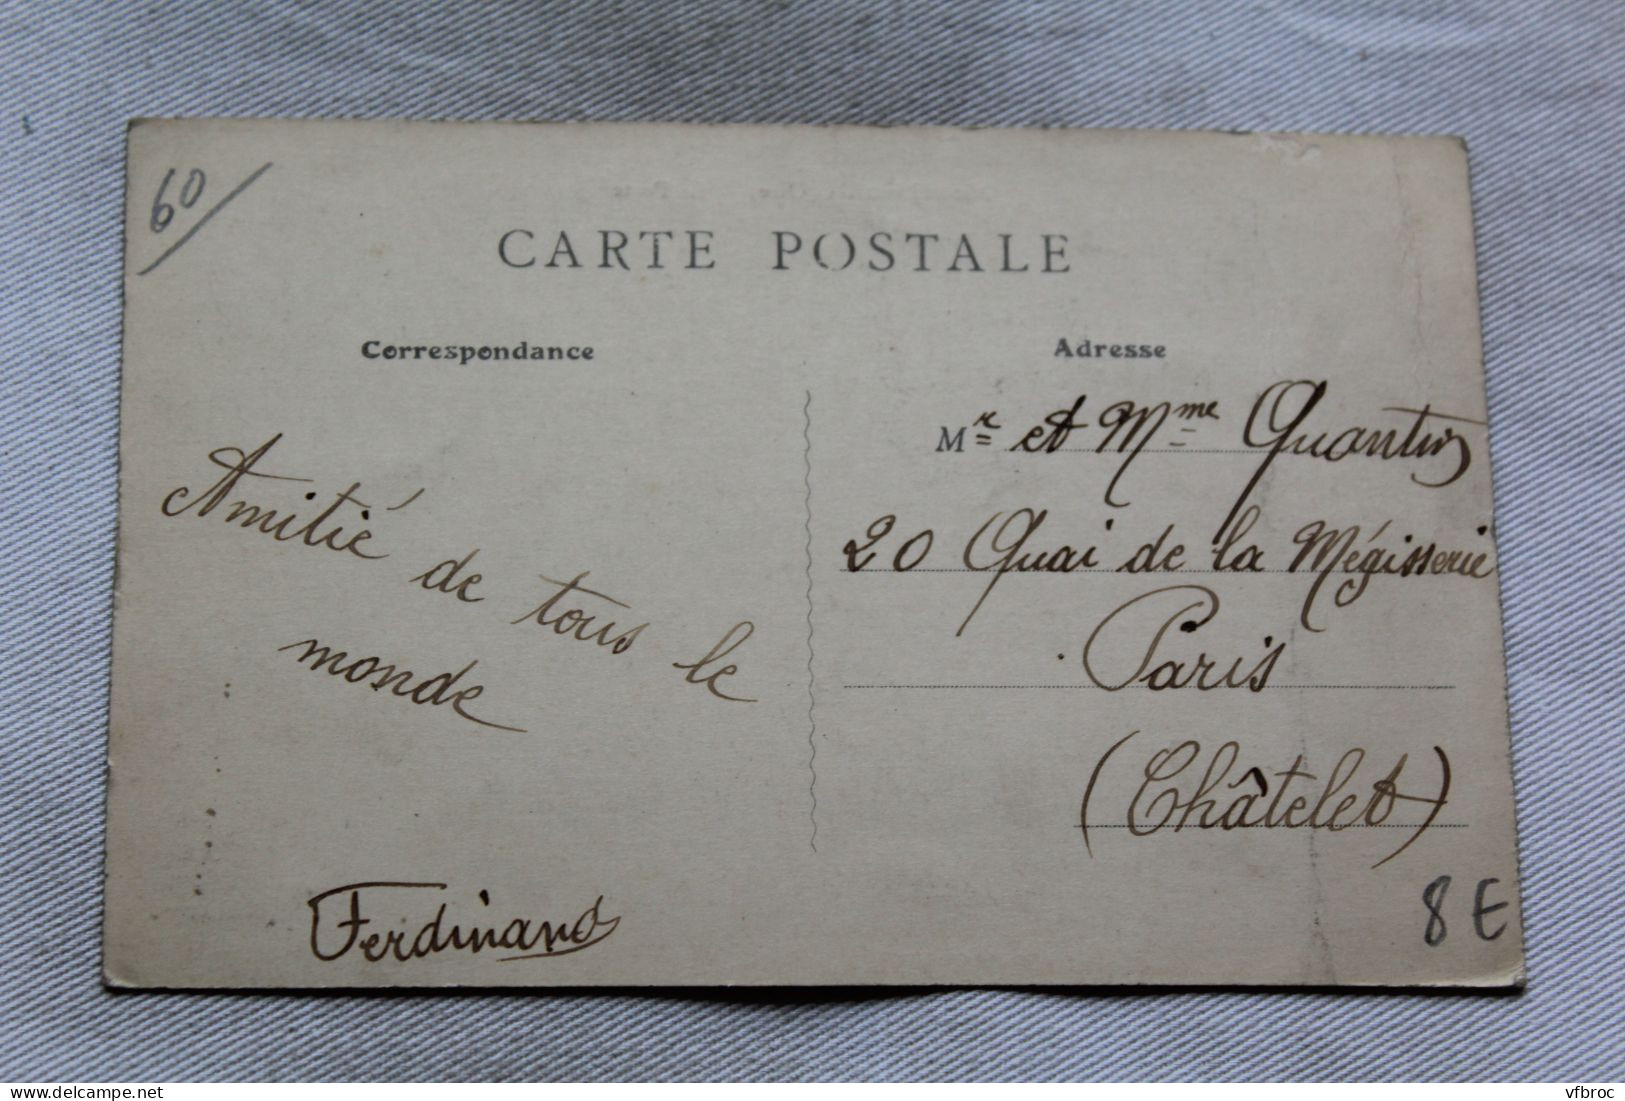 60/
CARTE POSTALE
Correspondance
Amitié de tous le
monde
Ferdinand
Adresse
Mr et Mme Quantin
20 Quai de la Mégisserie
Paris
(Châtelet)
8 E
www.delcampe.net
vfbroc